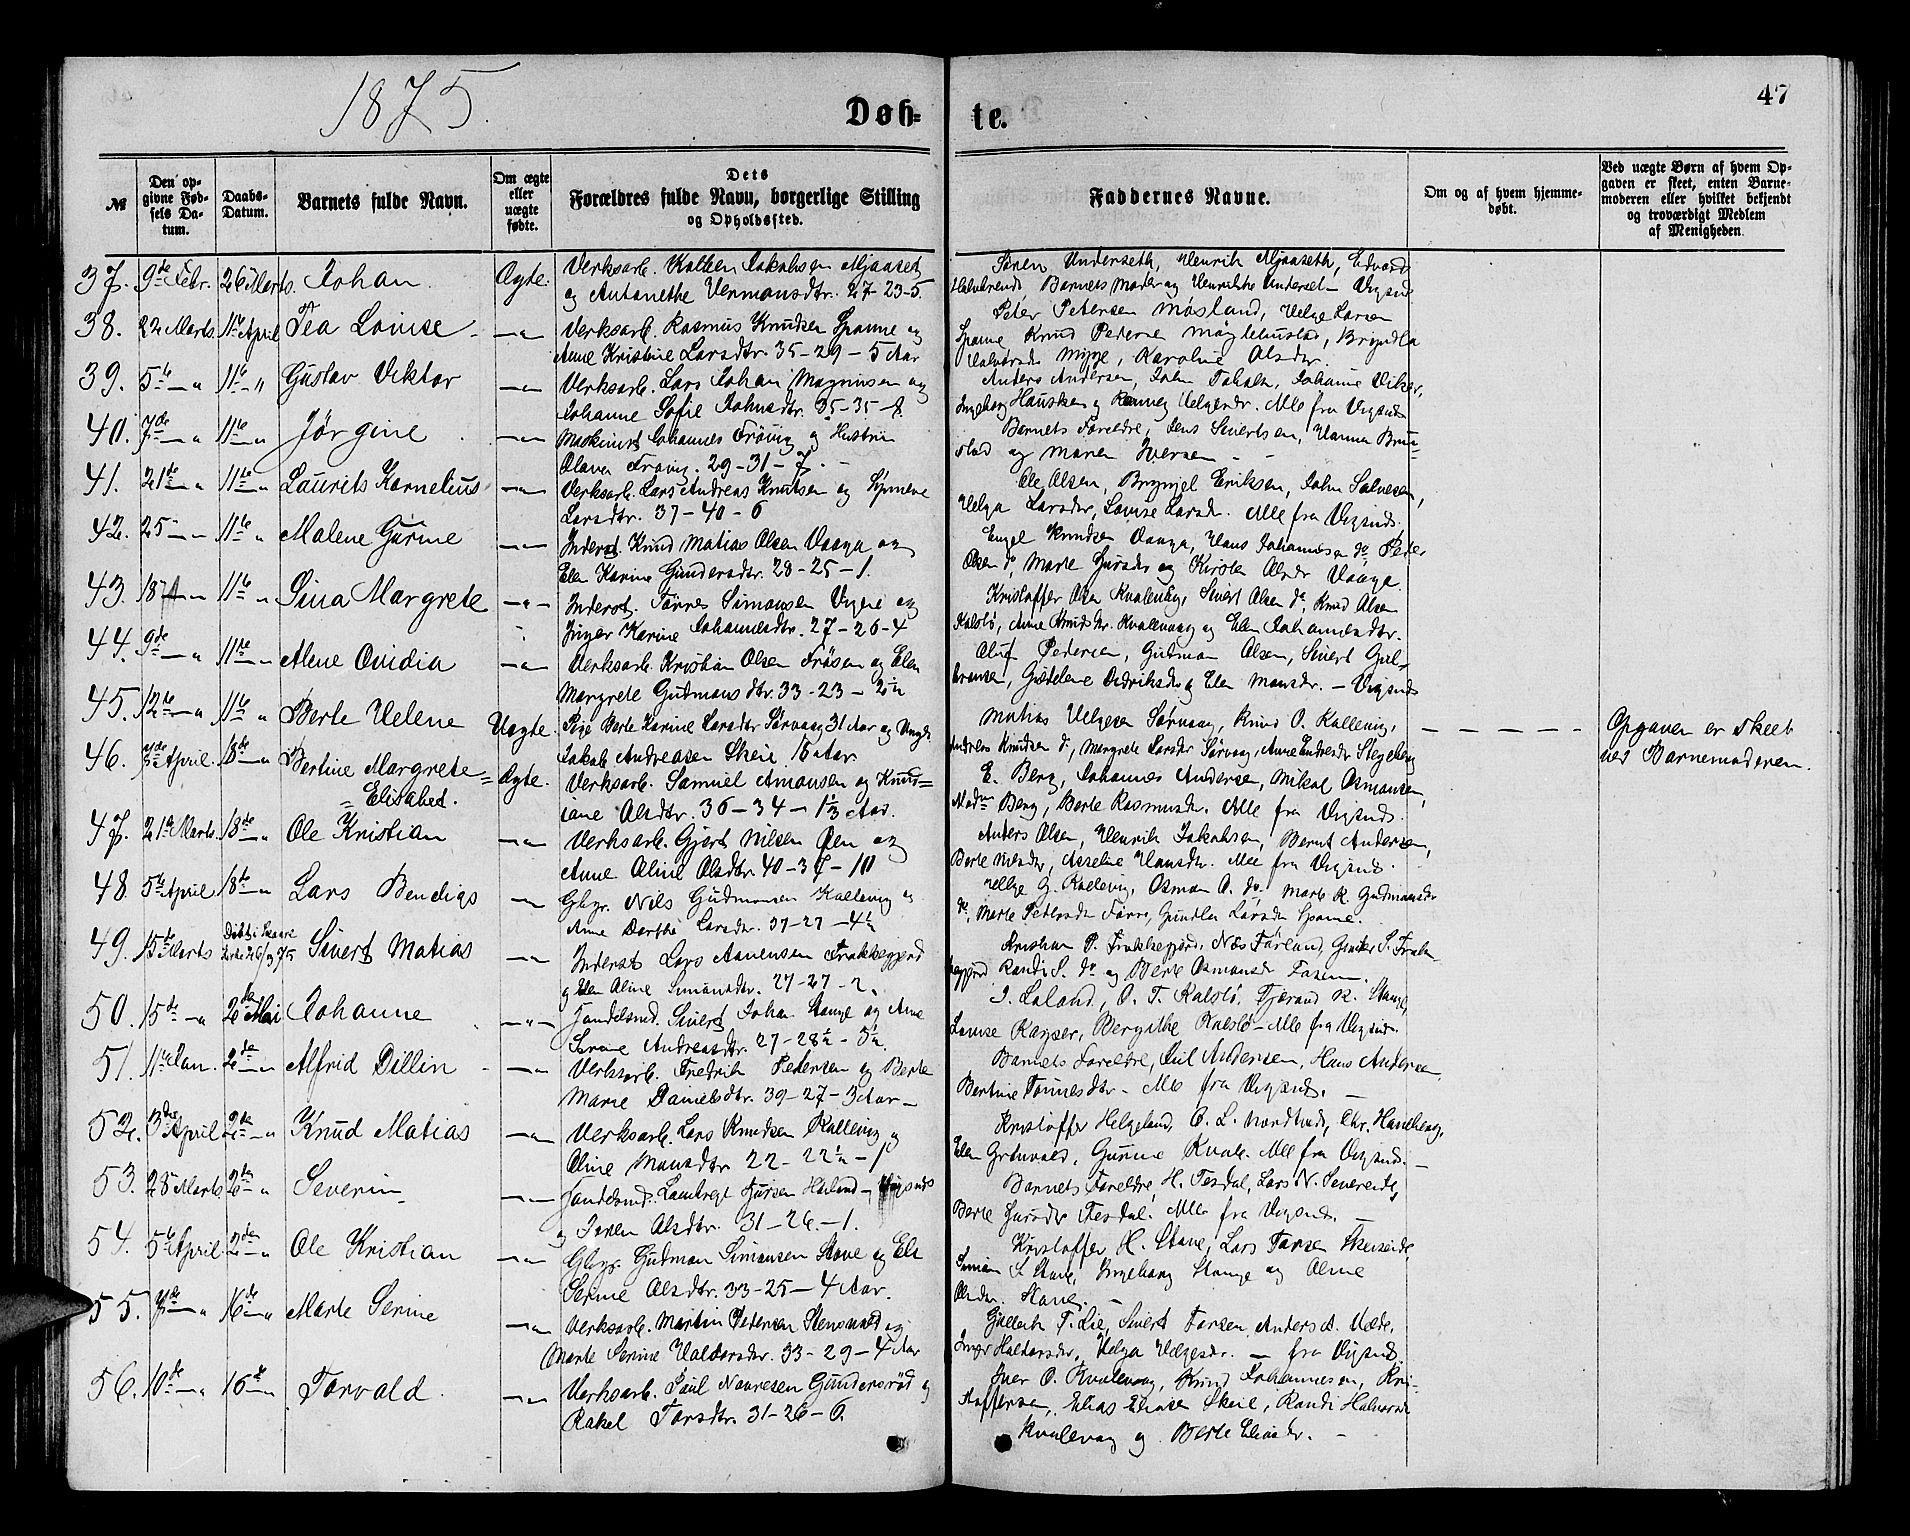 1875.
Døb-
te.
47
№
Den op-
givne Fød-
sels Da-
tum.
Daabs-
Datum.
Barnets fulde Navn.
Om ægte
eller
uægte
fødte.
Dets
Forældres fulde Navn, borgerlige Stilling
og Opholdssted.
Faddernes Navne.
Om og af hvem hjemme-
døbt.
Ved uægte Børn af hvem Op-
gaven er skeet, enten Barne-
moderen eller hvilket bekjendt
og troværdigt Medlem
af Menigheden.
37. 9de Febr. 26 Marts. Johan Ægte. Verksarb. Jakobsen
og Antonethe Hermansdtr. 27-23-5.
Søren Underseth, Henrik Mjaaseth, Edvard
Barnets Moder og Henrikke Underset - Vigsnæs
38. 22 Marts. 11te April Tea Louise -"- Verksarb. Rasmus Knudsen Spanne og
Anne Kristine Larsdtr. 35-29-5 Aar
Peter Petersen Møsland, Helge Larsen
Spanne Knud Peders Brynhla
Karoline Olsdtr.
39. 5te -" 11te -" Gustav Viktor -"- Verksarb. Lars Johan Magnusen og
Johanne Sofie Johnsdtr. 35-35-8.
Anders Andersen, John Johanne Viker,
Ingeborg Hausken og Helgesdr. Alle fra Vigsnæs
40. 7de -" 11te -" Jørgine -"- Maskinist Johannes Frøvig og Hustru
Olava Frøvig. 29-31-7. -
Barnets Foreldre, Jens Sivertsen, Hanna Brue-
stad og Maren Iversen - -
41. 21de -" 11te -" Laurits Kornelius -"- Verksarb. Lars Andreas Knutsen og Synneve
Larsdtr. 37-40-6
Ole Olsen, Brynjel Eriksen, John Salvesen,
Helga Larsdtr, Lovise Larsdr. Alle fra Vigsnds.
42. 25 -" 11te " Malene Gurine -"- Inderst. Knud Matias Olsen Vaaga og
Elen Karine Gundersdtr. 28-25-1.
Engel Knudsen Vaaga, Hans Johannesen do Peder
Olsen do, Marte og Kirsten Olsdr Vaaga
43. 18 -" 11te " Sina Margrete -"- Inderst. Tørres Simonsen Vigne og
Inger Karine Johannesdtr. 27-26-4
Kristoffer Olsen Kvalevaag, Sivert Olsen do, Knud Olsen
Kalstø, Anne Knudsdr. Kvalevaag og Elen Johannesdtr.
44. 9de -" 11te -" Alene Ovidia -"- Verksarb. Kristian Olsen Frøsen og Elen
Margrete Gudmansdtr. 33-23-2½
Oluf Pedersen, Gudman Olsen, Sivert Gul-
bransen, Didriksdr og Elen Monsdr. - Vigsnds
45. 12te -" 11te " Berte Helene Uægte. Pige Berte Karine Larsdtr Sørvaag 31 Aar og Ungk.
Jakob Andreasen Skeie 18 Aar
Matias Helgesen Sørvaag, Knud O. Kallevig,
Andreas Knudsen do, Margrete Larsdr Sørvaag, Anne Stegeberg
— — — — —
Opgaven er skeet
ved Barnemoderen.
46. 3die April. 18de -" Bertine Margrete
Elisabed. Ægte. Verksarb. Samuel Amonsen og Knud-
iane Olsdtr. 36-34-1⅓ Aar.
E. Berg, Johannes Andersen, Mikal Osmonsen,
Madm Berg, Berte Rasmusdr. Alle fra Vigsnds.
47. 21de Marts. 18de " Ole Kristian -"- Verksarb. Gjert Nilsen Øen og
Anne Aline Olsdtr. 40-37-10
Anders Olsen, Henrik Jakobsen, Bernt Andersen,
Berte Nilsdtr, Asseline Hansdtr. Alle fra Vigsnds.
48. 5te April 18de -" Lars Bendigs -"- Gbgr. Nils Gudmonsen Kallevig og
Ane Dorthe Larsdtr. 37-27-4½
Helge G. Kallevig, Osman O. do, Marte K. Gudmansdr
do, Marte Pedersdr Førre, Gundla Larsdr Spanne.
49. 15de Marts Døbt i Skaare
Kirke 26/3 75 Sivert Matias -"- Inderst Lars Aanensen Frakkagjerd
og Elen Aline Simonsdtr. 27-27-2.
Kristian P. Frakkegjerd, Nils Førland, S. Frak-
kegjerd Randi S. do og Berte Osmonsdr Fosen.
50. 15de -" 2den Mai Johanne -"- Handelsmd. Sivert Johan Stange og Ane
Serine Andreasdtr. 27-28½-5½.
J. Loland, O. T. Kalstø, Tjerand K. Stange,
Lovise Kayser, Bergithe Kalstø - Alle fra Vigsnds.
51. 11te Jan. 2den " Alfrid Dillin -"- Verksarb. Fredrik Pedersen og Berte
Marie Danielsdtr. 39-27-3 Aar -
Barnets Foreldre, Andersen, Hans Andersen,
Bertine Tønnesdtr - Alle fra Vigsnds. -
52. 3die April 2den -" Knud Matias -"- Verksarb. Lars Knudsen Kallevig og
Oline Monsdtr 22-22½-1
Kristoffer Helgeland, O. L. Nordtveit, Chr. Haneberg,
Elen Grønvold, Gurine Kvale. Alle fra Vigsnds. -
53. 28 Marts 2den -" Severin -"- Handelsmd. Lambregt Tjørsen Hauland - Vigsnds
og Joren Olsdtr. 31-26.-1.
Barnets Foreldre, H. Tesdal, Lars N. Sevreide,
Berte Tesdal. Alle fra Vigsnds. -
54. 5te April 2den -" Ole Kristian -"- Gbgr. Gudman Simonsen Stave og Else
Serine Olsdtr. 33-25-4 Aar.
Kristoffer H. Stave, Lars Torsen Skeiseide,
Simon S. Stave, Ingeborg Stange og Aline
Olsdr. Stave. -
55. 7de -" 16de " Marte Serine -"- Verksarb. Martin Pedersen Stensvold og
Marte Serine Haldorsdr. 33-29-4 Aar
Gullik T. Lie, Sivert Torsen, Anders A. Væde,
Inger Haldorsdr, Helga Helgesdr. - fra Vigsnds.
56. 10de -" 16de -" Torvald -"- Verksarb. Paul Gundersrød og
Rakel Torsdtr. 31-26-6.
Iver O. Kvalevaag, Knud Johannesen, Kri-
stoffersen, Elias Eliasen Skeie, Randi Halvorsdr
Kvalevaag og Berte Eliasdr. -